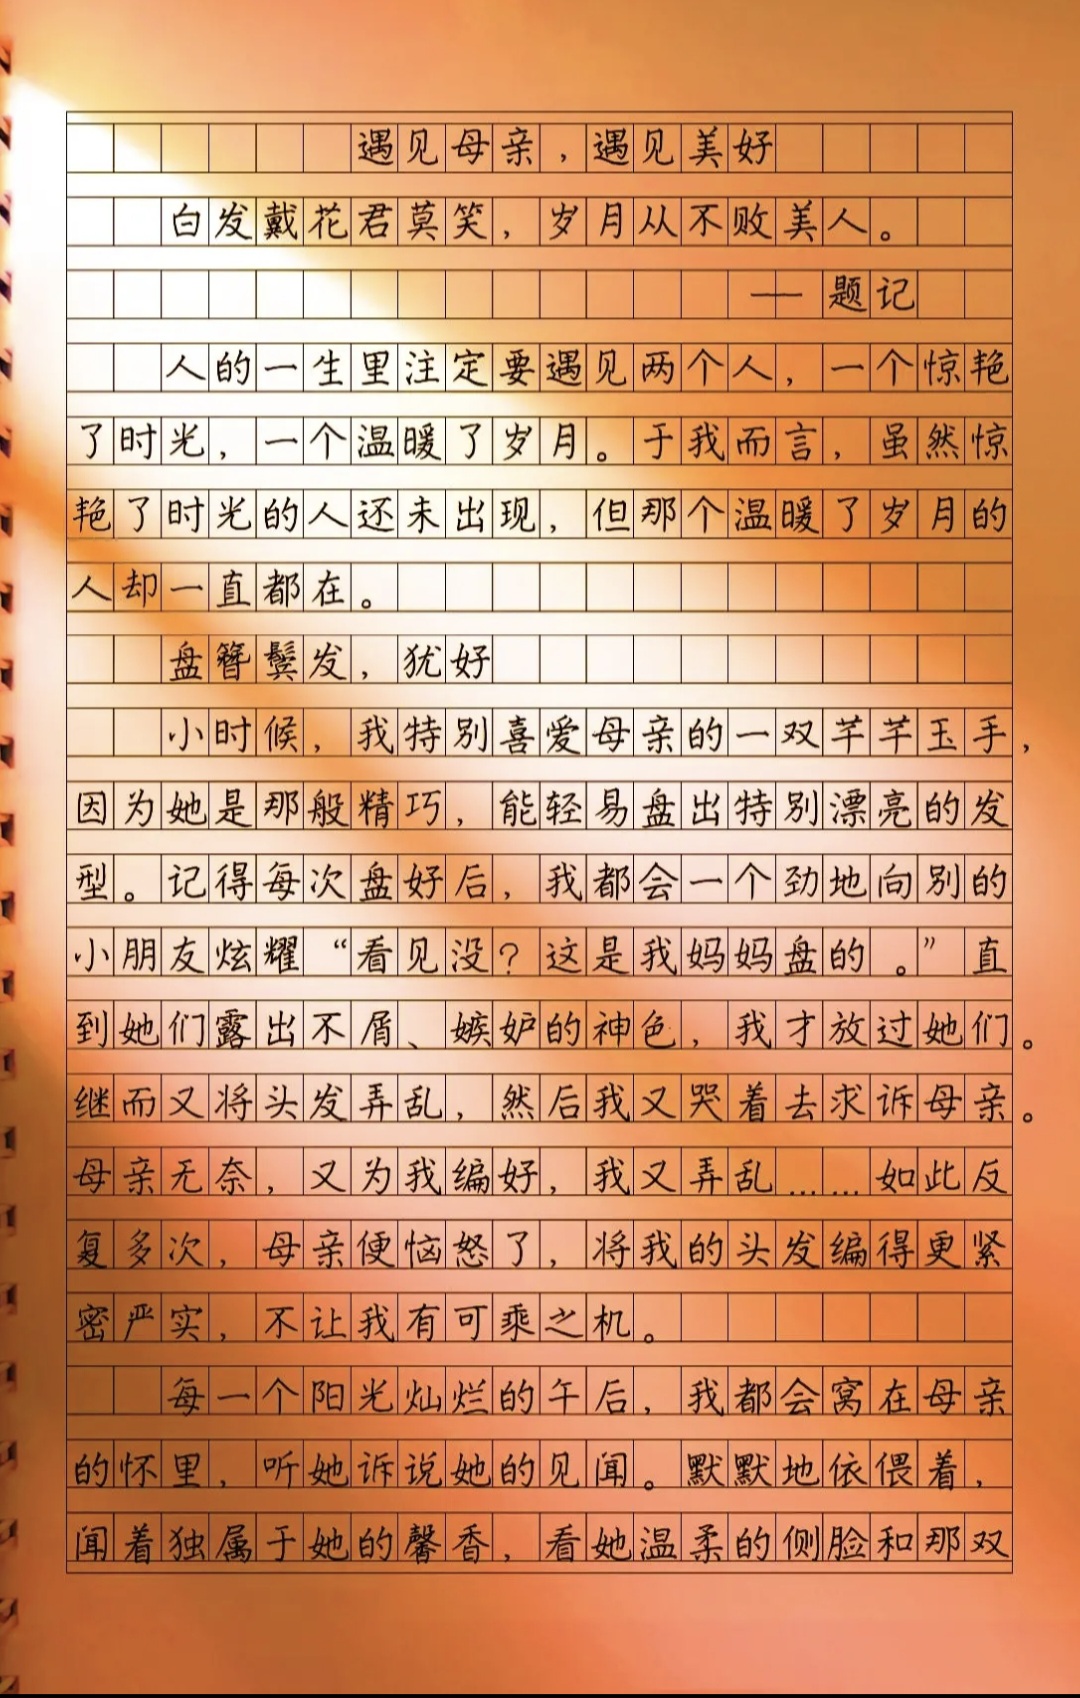 遇见母亲，遇见美好
白发戴花君莫笑，岁月从不败美人。
——题记
人的一生里注定要遇见两个人，一个惊艳
了时光，一个温暖了岁月。于我而言，虽然惊
艳了时光的人还未出现，但那个温暖了岁月的
人却一直都在。
盘簪鬓发，犹好
小时候，我特别喜爱母亲的一双芊芊玉手，
因为她是那般精巧，能轻易盘出特别漂亮的发
型。记得每次盘好后，我都会一个劲地向别的
小朋友炫耀“看见没？这是我妈妈盘的。”直
到她们露出不屑、嫉妒的神色，我才放过她们。
继而又将头发弄乱，然后我又哭着去求诉母亲。
母亲无奈，又为我编好，我又弄乱……如此反
复多次，母亲便恼怒了，将我的头发编得更紧
密严实，不让我有可乘之机。
每一个阳光灿烂的午后，我都会窝在母亲
的怀里，听她诉说她的见闻。默默地依偎着，
闻着独属于她的馨香，看她温柔的侧脸和那双